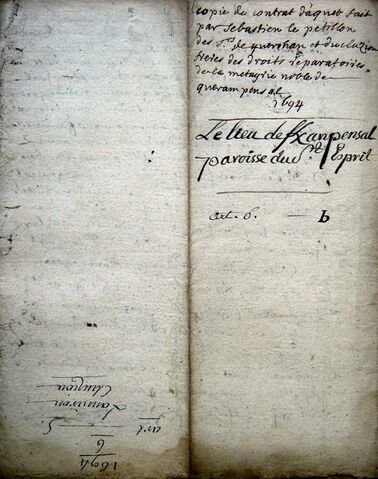 copie de contrat d'aquet fait
par sebastien le petillon
des S.rs de querghan et ducluzion
freres des droits reparatoires
de la metayrie noble de
querampensal
1694
Le lieu de Kanpensal
paroisse du St Esprit
art. 6. — b
1694
6
art S.
Lannion